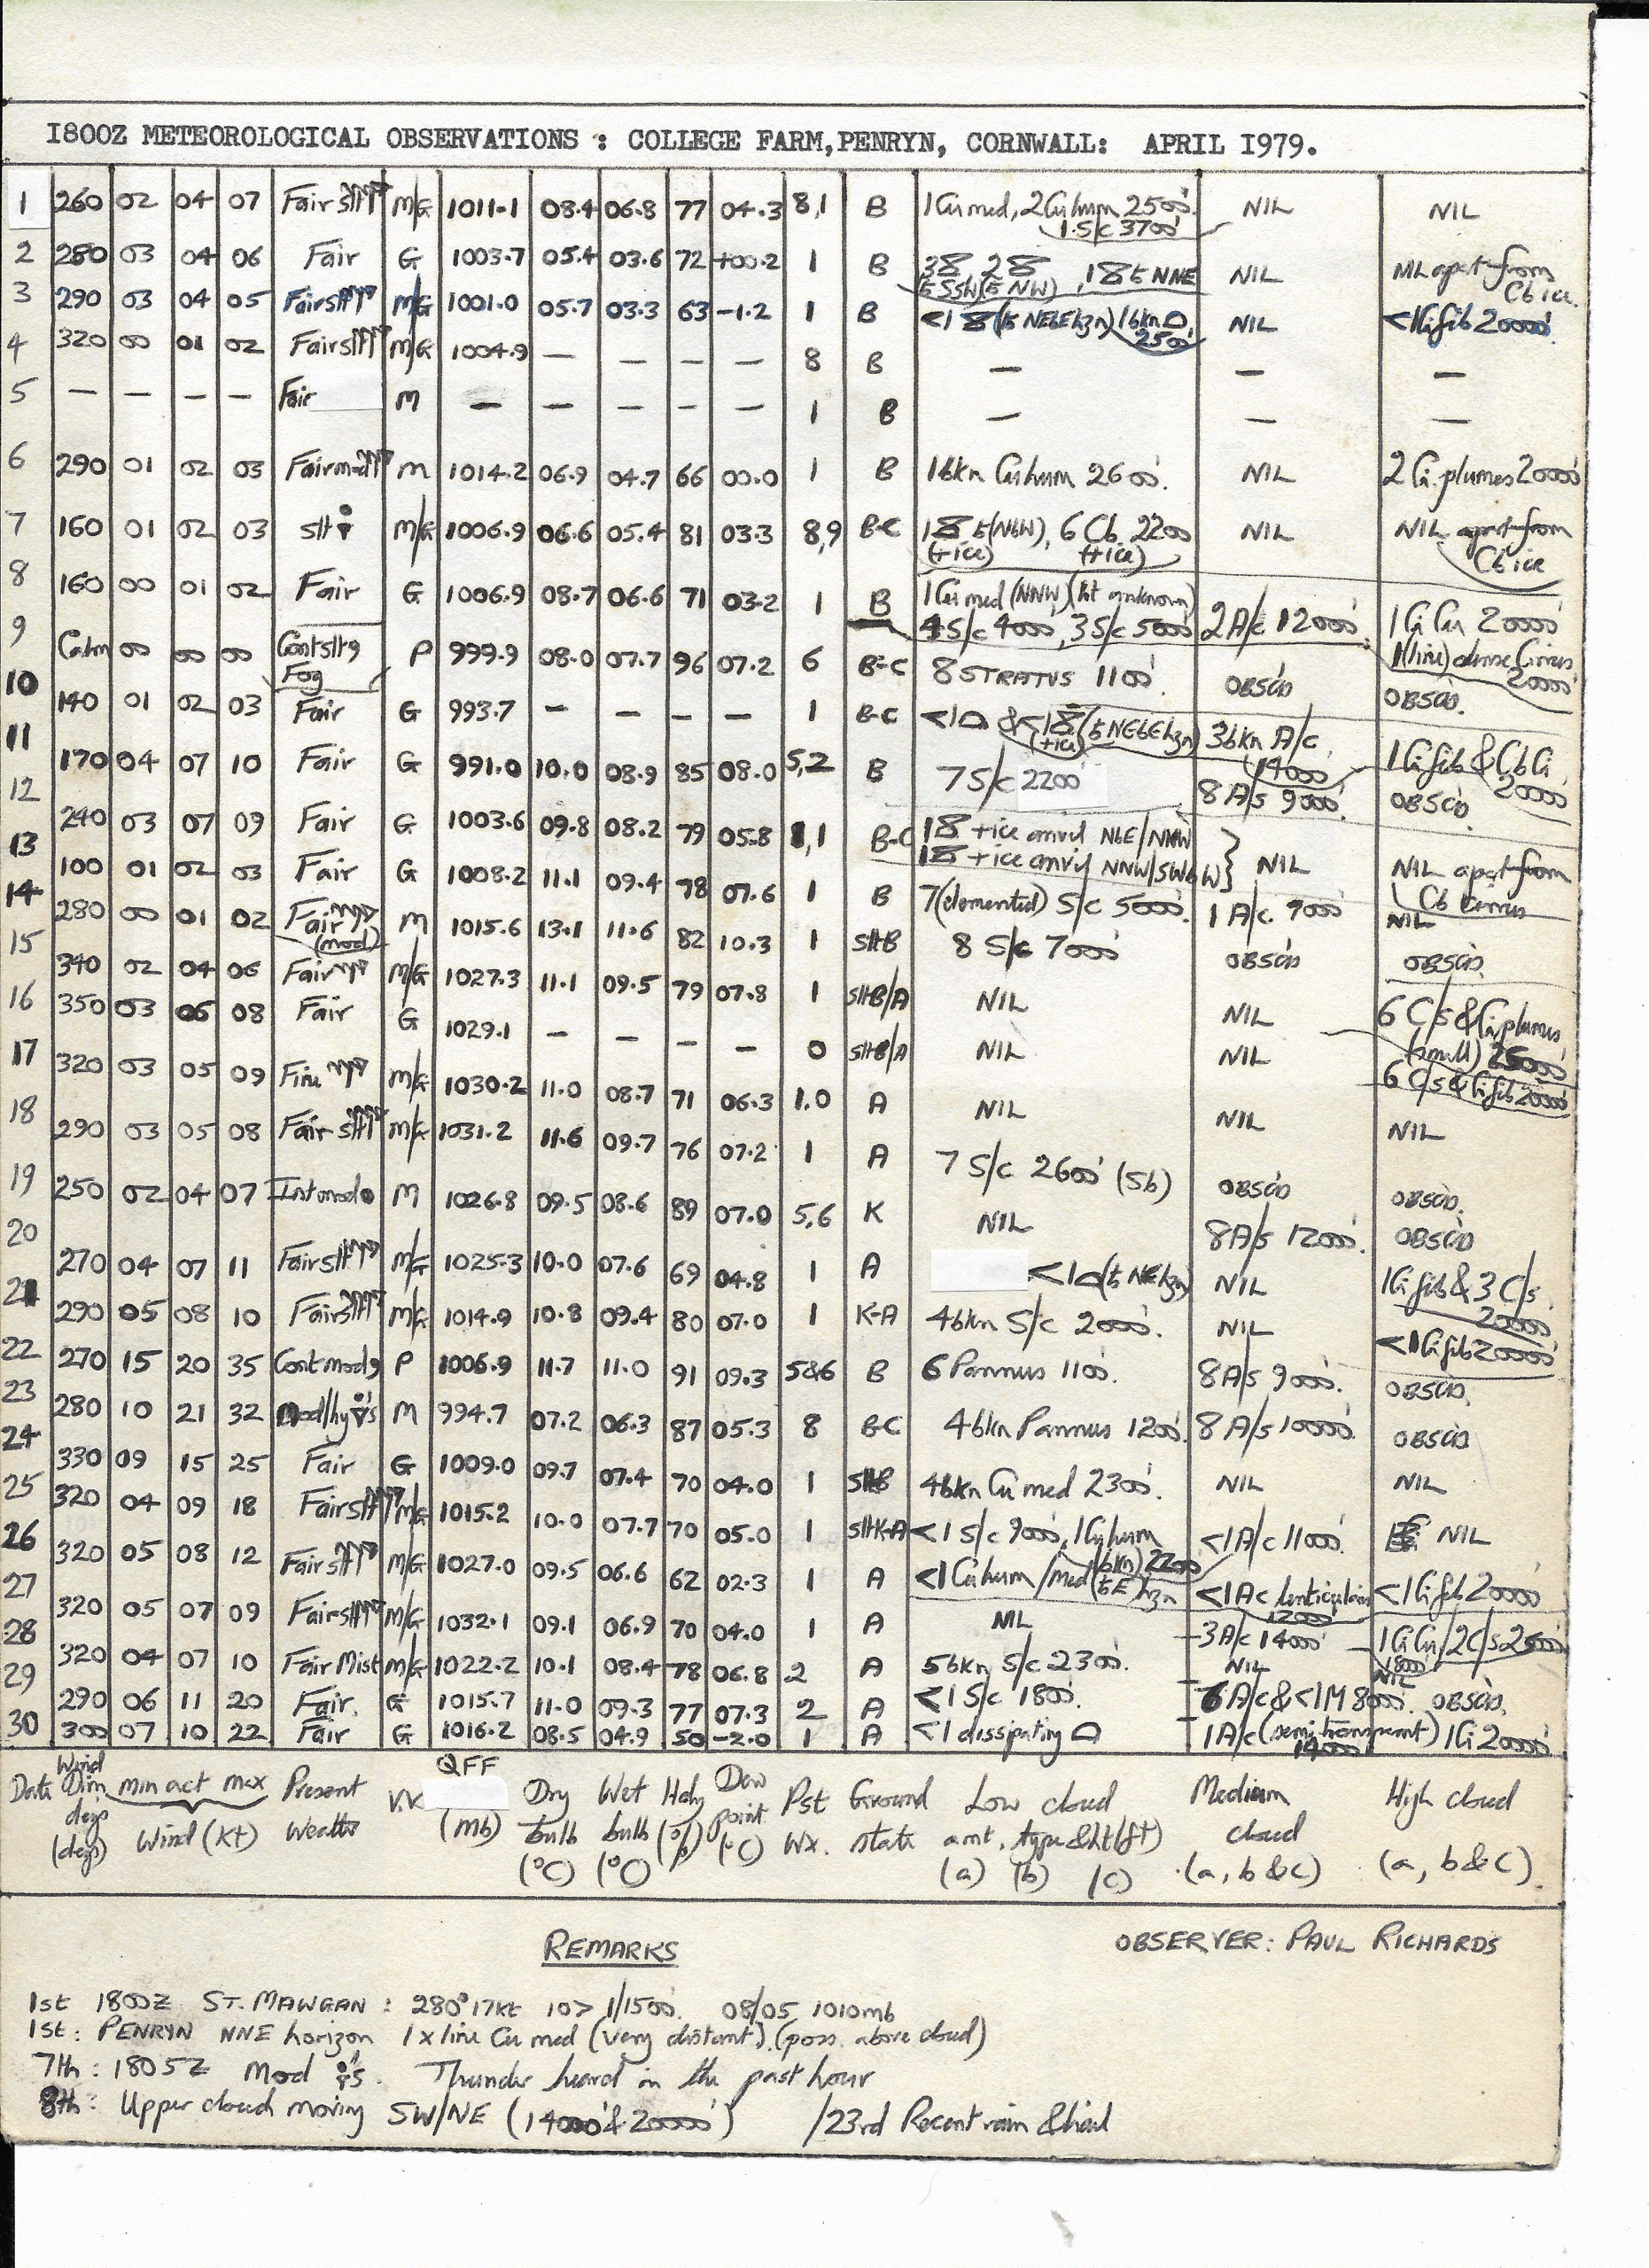 1800Z METEOROLOGICAL OBSERVATIONS : COLLEGE FARM, PENRYN, CORNWALL: APRIL 1979.
1 260 02 04 07 Fair slt M/G 1011.1 08.4 06.8 77 04.3 8,1 B 1 Cu med, 2 Cu hum 2500'. 1 S/c 3700' NIL NIL
2 280 03 04 06 Fair G 1003.7 05.4 03.6 72 +00.2 1 B NIL NIL apart from Cb ice.
3 290 03 04 05 Fair slt M/G 1001.0 05.7 03.3 63 -1.2 1 B 2500' NIL <1 Ci fib 20000'
4 320 00 01 02 Fair slt M/G 1004.9 — — — — 8 B — — —
5 — — — — Fair M — — — — — 1 B — — —
6 290 01 02 03 Fair mod M 1014.2 06.9 04.7 66 00.0 1 B 1 bkn Cu hum 2600'. NIL 2 Ci plumes 20000'
7 160 01 02 03 slt M/G 1006.9 06.6 05.4 81 03.3 8,9 B-C (+ice) 6 Cb 2200 (+ice) NIL NIL apart from Cb ice
8 160 00 01 02 Fair G 1006.9 08.7 06.6 71 03.2 1 B 1 Cu med (NNW) (ht unknown) 4 S/c 4000', 3 S/c 5000' 2 A/c 12000' 1 Ci Cu 20000' 1 (line) dense Cirrus 20000'
9 Calm 00 00 00 Cont slt 9 Fog P 999.9 08.0 07.7 96 07.2 6 B-C 8 STRATUS 1100'. OBSCD OBSCD.
10 140 01 02 03 Fair G 993.7 — — — — 1 B-C (+ice) 3 bkn A/c 14000' 1 Ci fib & Cb Ci 20000'
11 170 04 07 10 Fair G 991.0 10.0 08.9 85 08.0 5,2 B 7 S/c 2200' 8 A/s 9000'. OBSCD
12 240 03 07 09 Fair G 1003.6 09.8 08.2 79 05.8 1 B-C +ice anvil NbE/NNW +ice anvil NNW/SWbW NIL NIL apart from Cb Cirrus
13 100 01 02 03 Fair G 1008.2 11.1 09.4 78 07.6 1 B 7 (elemented) S/c 5000'. 1 A/c 9000 NIL
14 280 00 01 02 Fair (mod) M 1015.6 13.1 11.6 82 10.3 1 slt B 8 S/c 7000' OBSCD OBSCD.
15 340 02 04 06 Fair M/G 1027.3 11.1 09.5 79 07.8 1 slt B/A NIL NIL 6 C/s & Ci plumes (small) 25000'
16 350 03 06 08 Fair G 1029.1 — — — — 0 slt B/A NIL NIL 6 C/s & Ci fib 20000'
17 320 03 05 09 Fine M/G 1030.2 11.0 08.7 71 06.3 1,0 A NIL NIL NIL
18 290 03 05 08 Fair slt M/G 1031.2 11.6 09.7 76 07.2 1 A 7 S/c 2600' (Sb) OBSCD OBSCD.
19 250 02 04 07 Int mod M 1026.8 09.5 08.6 89 07.0 5,6 K NIL 8 A/s 12000'. OBSCD
20 270 04 07 11 Fair slt M/G 1025.3 10.0 07.6 69 04.8 1 A <1 NIL 1 Ci fib & 3 C/s 20000'
21 290 05 08 10 Fair slt M/G 1014.9 10.8 09.4 80 07.0 1 K-A 4 bkn S/c 2000'. NIL <1 Ci fib 20000'
22 270 15 20 35 Cont mod 9 P 1006.9 11.7 11.0 91 09.3 5&6 B 6 Pannus 1100'. 8 A/s 9000'. OBSCD.
23 280 10 21 32 Mod/hy M 994.7 07.2 06.3 87 05.3 8 B-C 4 bkn Pannus 1200'. 8 A/s 10000'. OBSCD
24 330 09 15 25 Fair G 1009.0 09.7 07.4 70 04.0 1 slt B 4 bkn Cu med 2300'. NIL NIL
25 320 04 09 18 Fair slt M/G 1015.2 10.0 07.7 70 05.0 1 slt K-A <1 S/c 9000', 1 Cu hum (bkn) 2200 <1 A/c 11000'. NIL
26 320 05 08 12 Fair slt M/G 1027.0 09.5 06.6 62 02.3 1 A <1 Cu hum/med <1 Ac lenticularis 12000' <1 Ci fib 20000'
27 320 05 07 09 Fair slt M/G 1032.1 09.1 06.9 70 04.0 1 A NIL 3 A/c 14000' 1 Ci Cu/2 C/s 25000' 18000'
28 320 04 07 10 Fair Mist M/G 1022.2 10.1 08.4 78 06.8 2 A 5 bkn S/c 2300'. NIL NIL
29 290 06 11 20 Fair. G 1015.7 11.0 09.3 77 07.3 2 A <1 S/c 1800'. 6 A/c & <1 M 8000'. OBSCD.
30 300 07 10 22 Fair G 1016.2 08.5 04.9 50 -2.0 1 A <1 dissipating 1 A/c (semi transparent) 14000' 1 Ci 20000'
Date Wind Dirn degs (degs) min act max Wind (kt) Present Weather VV QFF (mb) Dry bulb (°C) Wet bulb (°C) Hdy (%) Dew point (°C) Pst Wx. Ground state Low cloud amt, type & ht (ft) (a) (b) (c) Medium cloud (a, b & c) High cloud (a, b & c).
REMARKS
OBSERVER: PAUL RICHARDS
1st 1800Z ST. MAWGAN: 280° 17kt 10> 1/1500'. 08/05 1010mb
1st: PENRYN NNE horizon 1 x line Cu med (very distant) (poss. above cloud)
7th: 1805Z Mod Thunder heard in the past hour
8th: Upper cloud moving SW/NE (14000' & 20000') /23rd Recent rain & hail